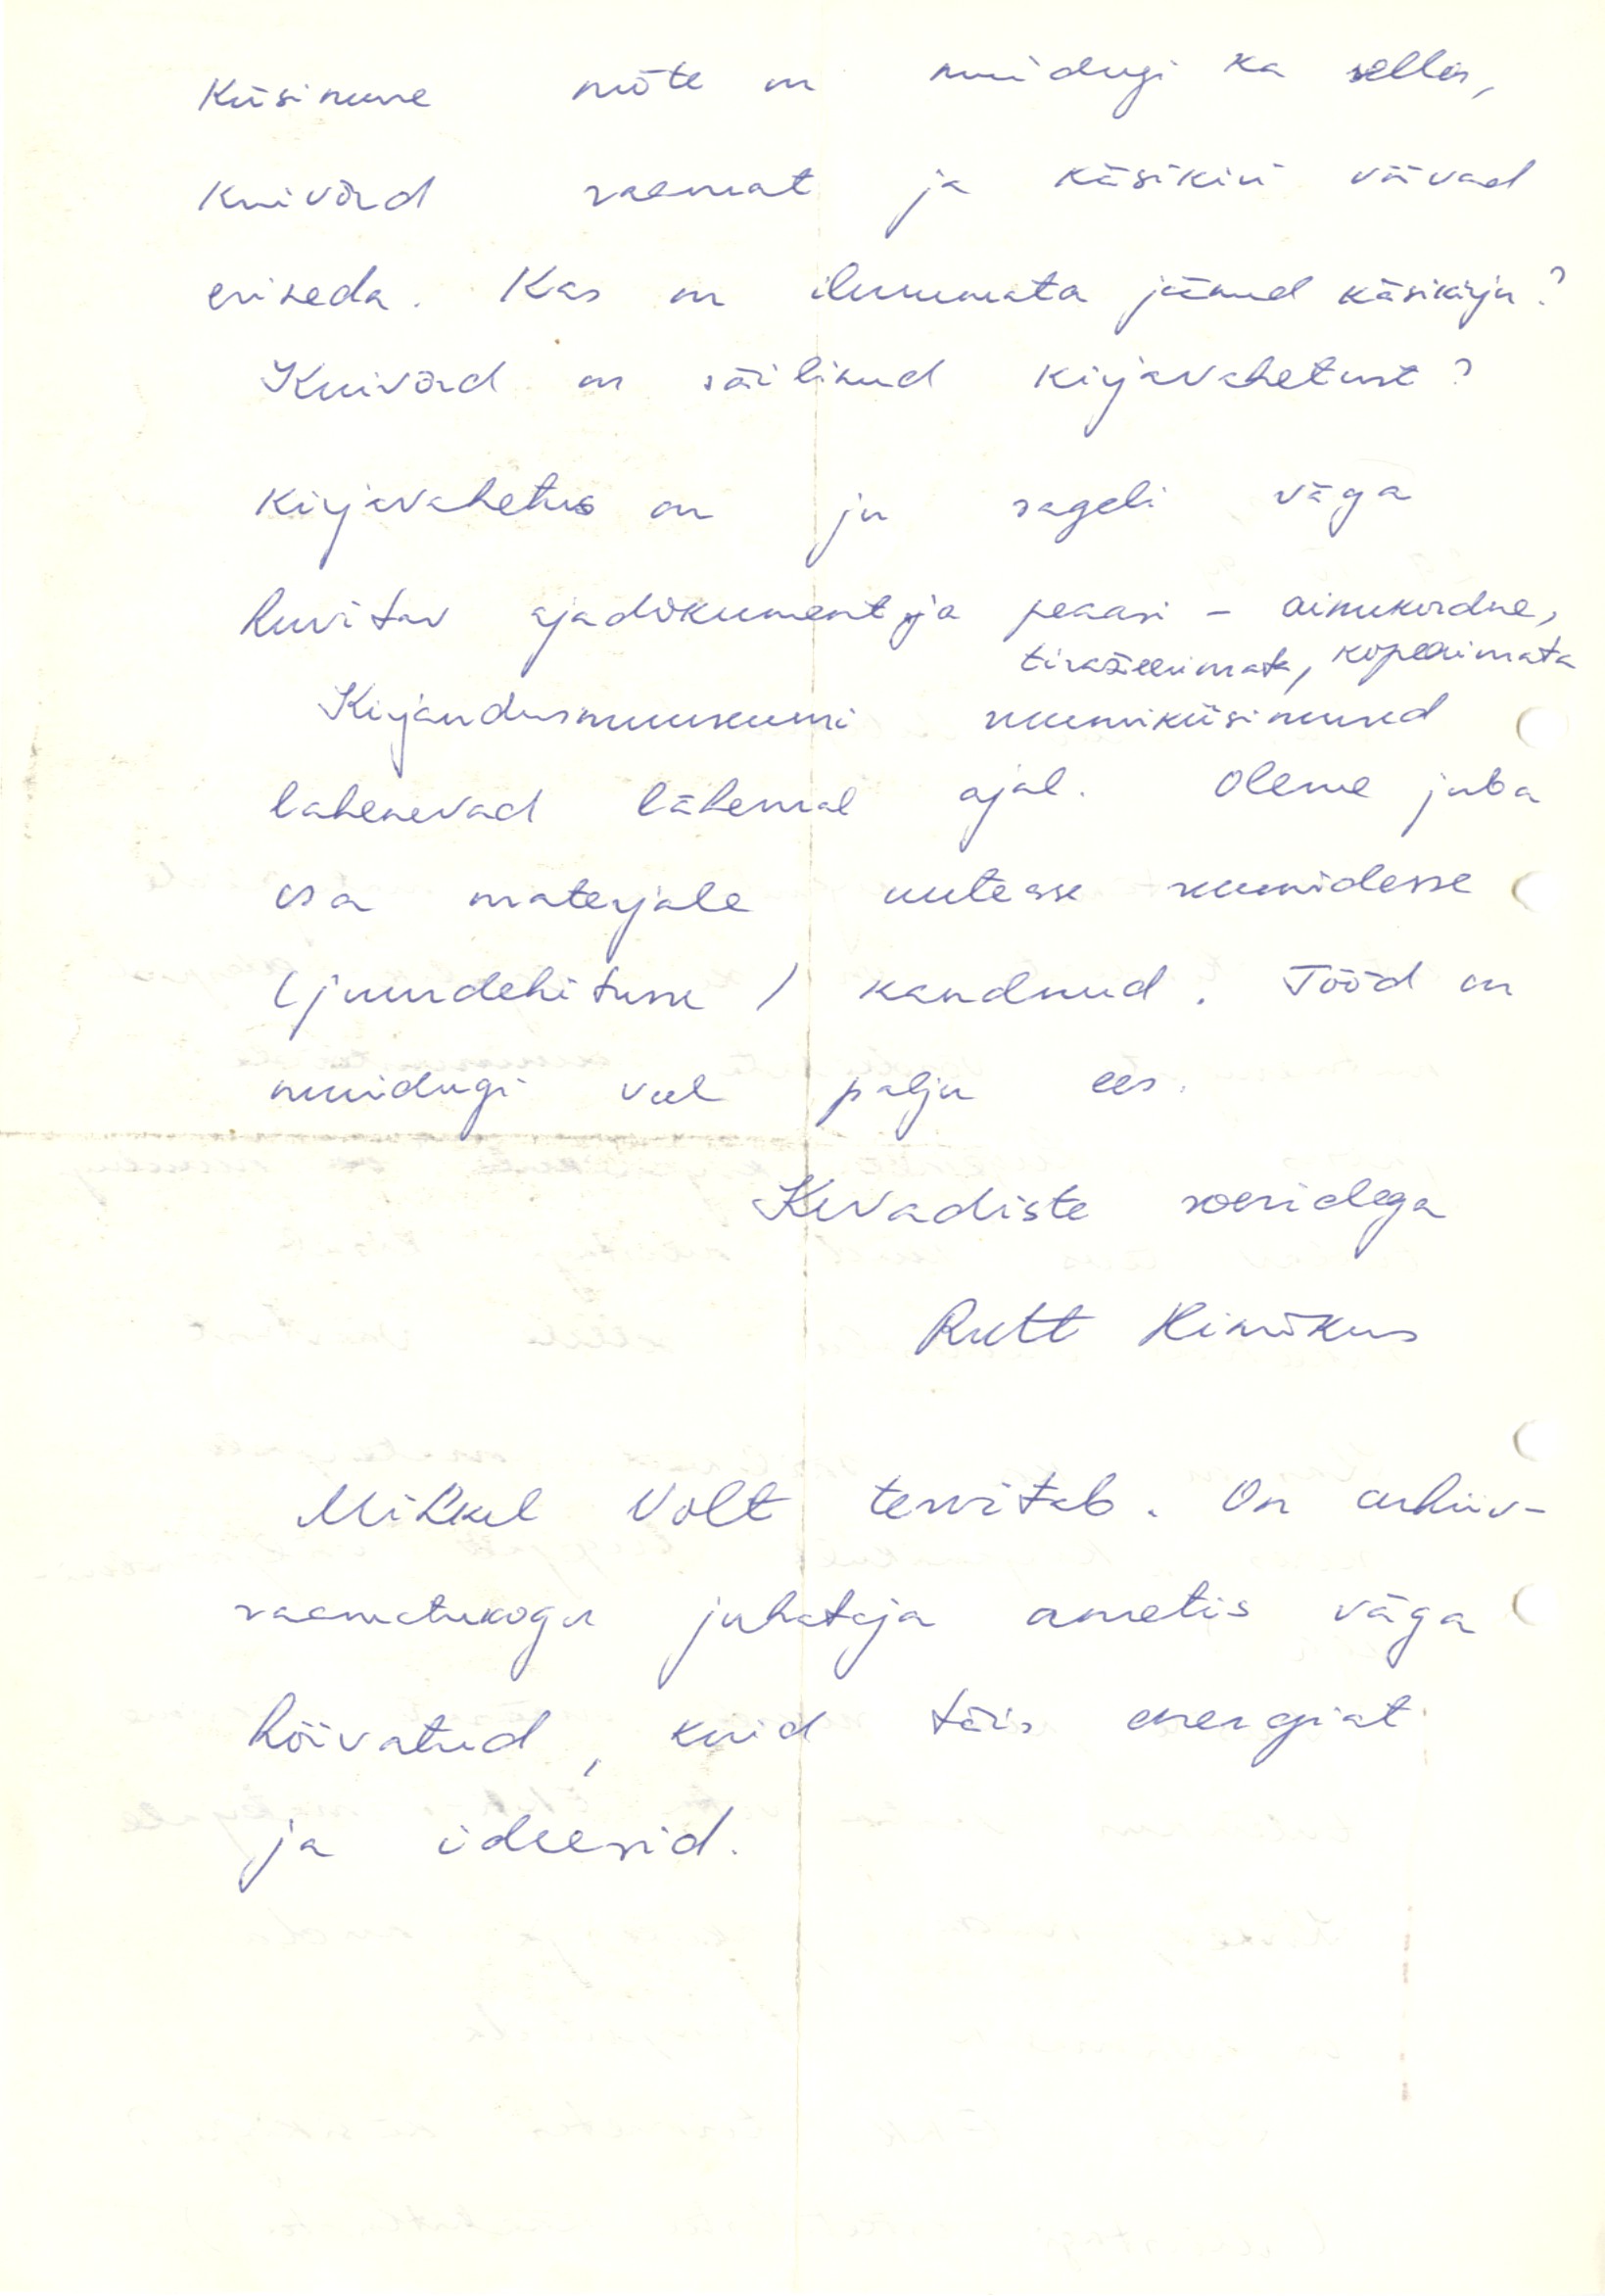 Küsimuse mõte on muidugi ka selles,
kuivõrd raamat ja käsikiri võivad
erineda. Kas on ilmumata jäänud käsikirju?
Kuivõrd on säilinud kirjavahetust?
Kirjavahetus on ju sageli väga
huvitav ajadokument ja peaasi – ainukordne,
tiražeerimata, kopeerimata
Kirjandusmuuseumi ruumiküsimused
lahenevad lähemal ajal. Oleme juba
osa materjale uutesse ruumidesse
(juurdehitusse) kandnud. Tööd on
muidugi veel palju ees.
Kevadiste soovidega
Rutt Hinrikus
Mihkel Volt tervitab. On arhiiv-
raamatukogu juhataja ametis väga
hõivatud, kuid täis energiat
ja ideesid.